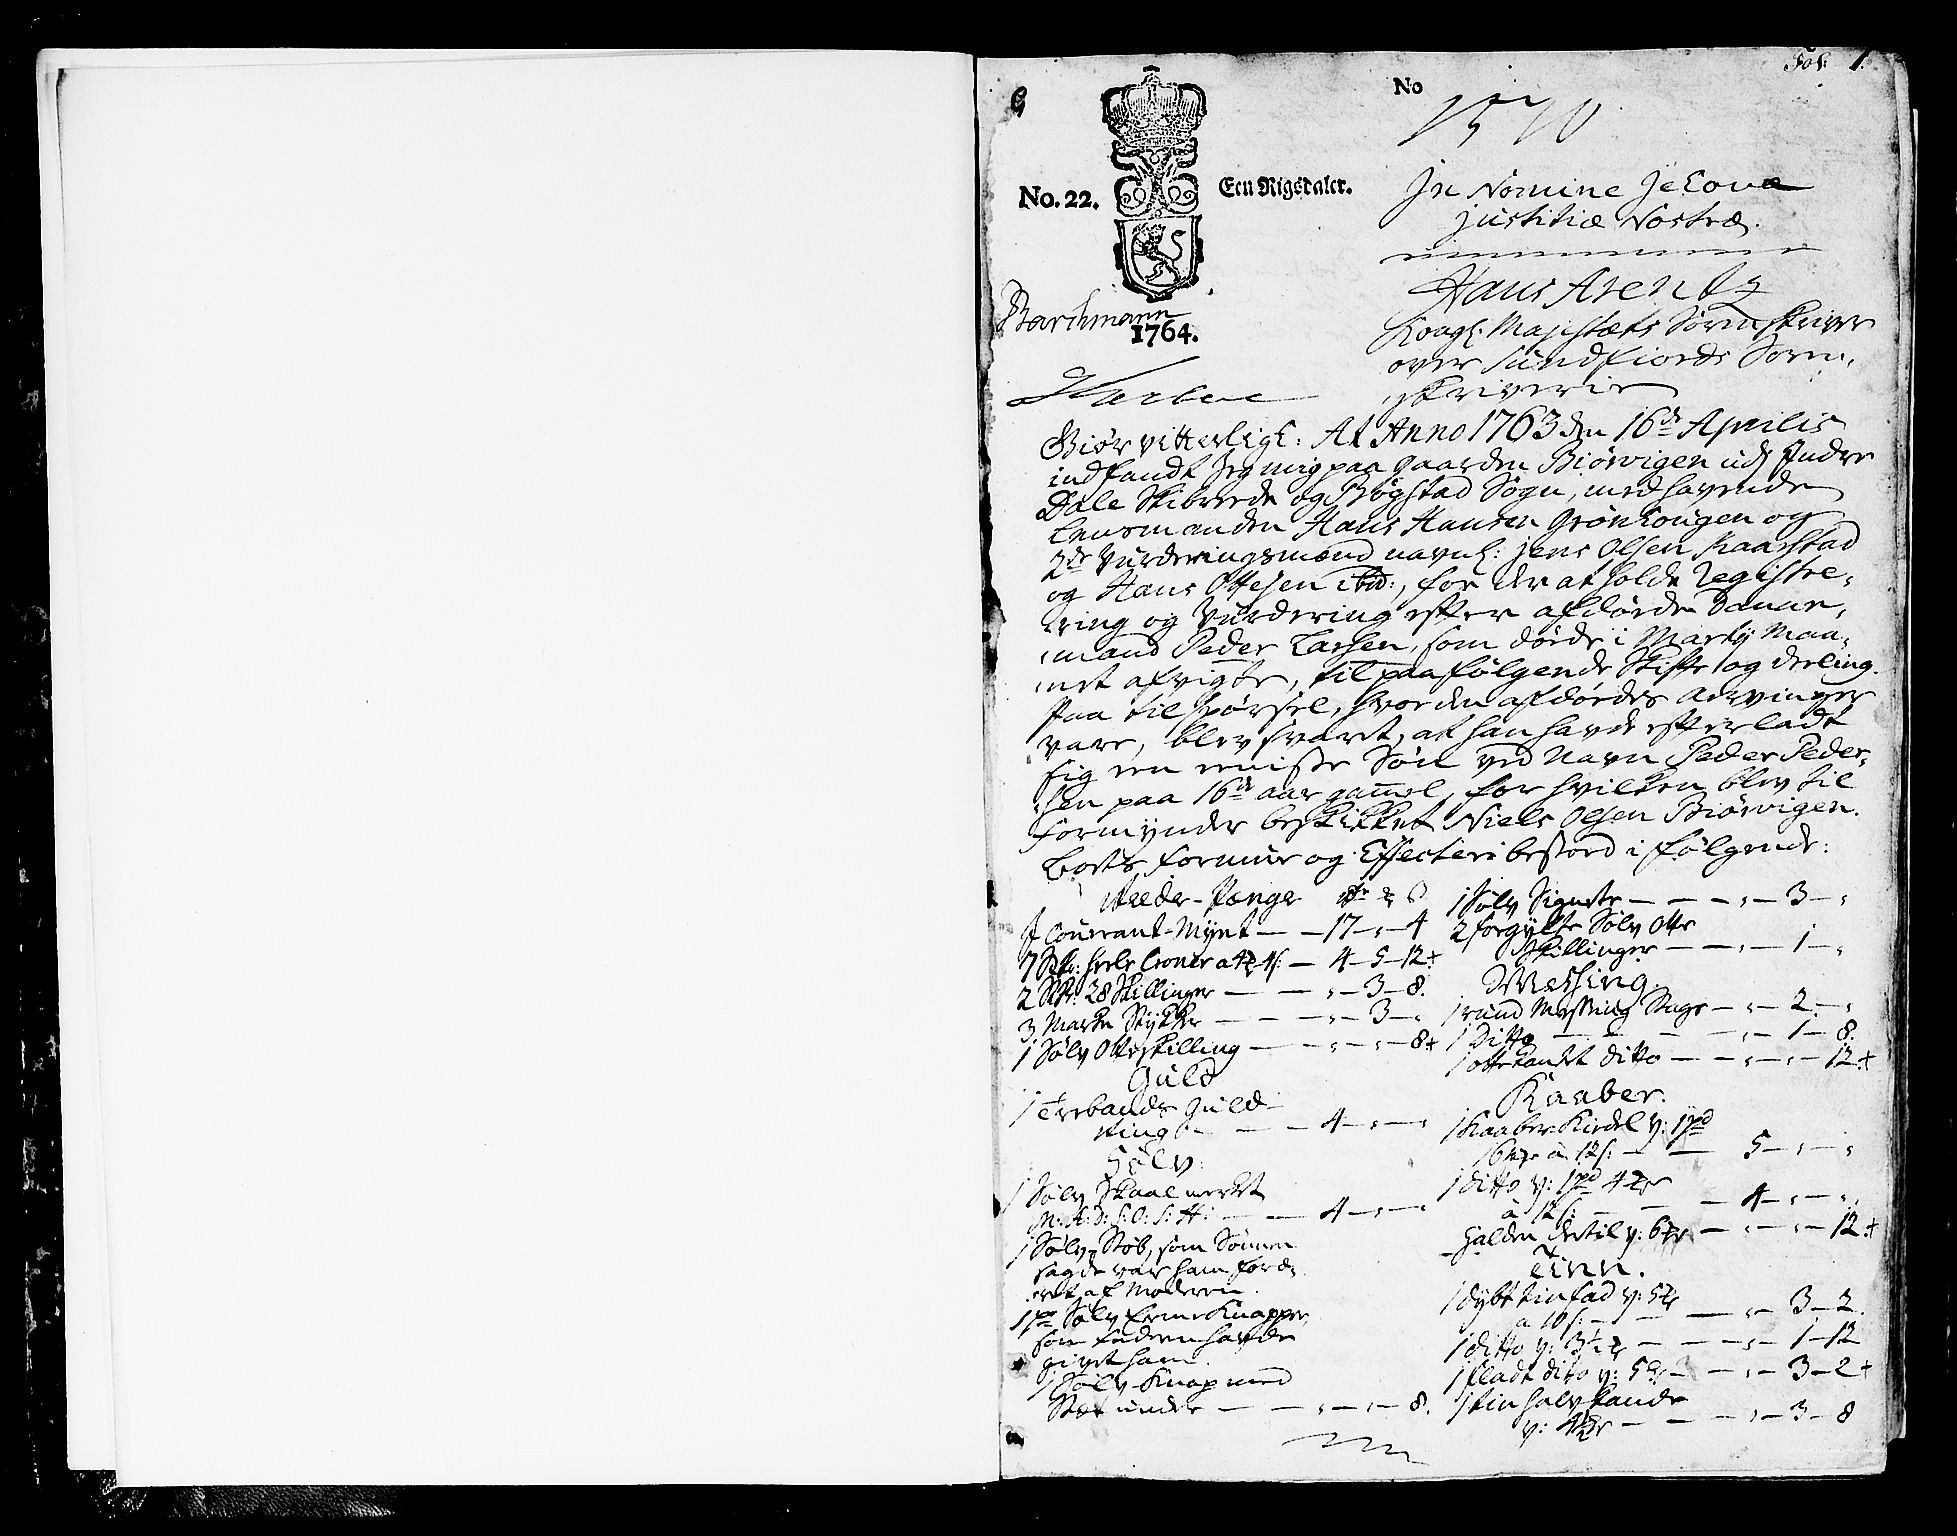 Fol: 1.
No
1570
No. 22.
Een Rigsdaler.
Jn Nomine Jehovæ
justitiæ Nostræ.
Hans Arentz
Kongl: Majestæts Sorenskriver
over Sundfiords Soren,
skriverie
Barchmann
1764.
Giør vitterligt: At Anno 1763 den 16de Aprilis
indfandt Jeg mig paa gaarden Biørvigen udj Indre
Dale Skibrede og Bøgstad Sogn, medhavende
Lensmanden Hans Hansen Grønhougen og
2de Vurderingsmænd navnl: Jens Olsen Kaarstad
og Hans Ottesen ibid:, for der at holde Registre,
,ring og Vurdering efter afdøde Danne,
,mand Peder Larsen, som døde i Martij Maa,
,net afvigte, til paafølgende Skifte og deeling.
Paa tilspørsel, hvor den afdødes Arvinger
vare, blev svaret, at han havde efterladt
sig een eeniste Søn ved Navn Peder Peder,
,sen paa 16de aar gammel, for hvilken blev til
formynder beskikket Niels Olsen Biørvigen.
Boets formue og Effecter bestod i følgende:
Reede-Penge
J Courant-Mynt — — 17 - " - 4
7 Stk: heele Croner a 4 4s: — 4 - 5 - 12+
2 Stk: 28 Skillinger — — " - 3 - 8.
3 Marke Stykker — — " - 3 - "
1 Sølv Otteskilling — — " - " - 8+
Guld
1 Trebands Guld-
Ring — — 4 - " - "
Sølv:
1 Sølv Skaal merket
M: A: D: S: O: S: H: — — 4 - " - "
1 Sølv-Støb, som Sønnen
sagde var ham for,
,eret af Moderen.
1 pr Sølv Erme Knapper,
som faderen havde
givet ham.
1 Sølv-Knap med
Stæt under — — " - " - 8.
1 Sølv Signete — — " - 3 - "
2 forgylte Sølv Otte
Skillinger — — " - 1 - "
Messing.
1 rund Messing Stage — " - 2 - "
1 Ditto — — " - 1 - 8.
1 ottekandet ditto — — " - " - 12+
Kaaber.
1 Kaaber-Kiedel v: 1pd
16 a 12s: — — 5 - " - "
1 ditto v: 1pd 4
a 12s: — — 4 - " - "
dertil v: 6 — " - " - 12+
Tinn.
1 dybt tinfad v: 5
a 10s: — — " - 3 - 2.
1 ditto v: 3½ — — " - 1 - 12
1 fladt dito v: 5 — " - 3 - 2+
1 tin halv kande
v: 4½ — — " - 3 - 8